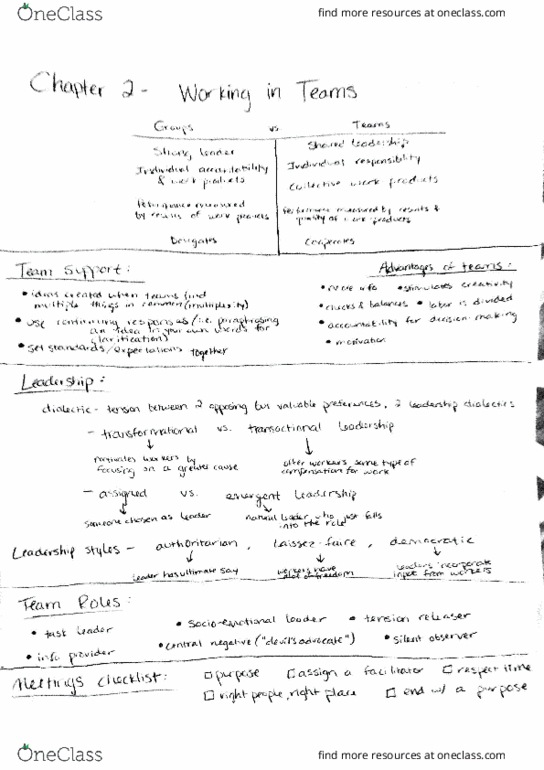 OneClass
find more resources at oneclass.com
Chapter 2 - Working in Teams
Groups vs Teams
Strong leader
Shared leadership
Individual accountability
& work products
Individual responsibility
Collective work products
Performance measured
by results of work products
Performance measured by results &
quality of work products
Delegates
Cooperates
Team Support:
• ideas created when teams find
multiple things in common (multiplexity)
• use confirming responses (i.e. paraphrasing
an idea in your own words for
clarification)
• set standards/expectations together
Advantages of teams:
• more info • stimulates creativity
• checks & balances • labor is divided
• accountability for decision-making
• motivation
Leadership:
dialectic - tension between 2 opposing but valuable preferences, 2 leadership dialectics
- transformational vs. transactional leadership
motivates workers by
focusing on a greater cause
offer workers some type of
compensation for work
- assigned vs. emergent leadership
someone chosen as leader
natural leader who just falls
into the role
Leadership styles - authoritarian, laissez-faire, democratic
leader has ultimate say
workers have
alot of freedom
leaders incorporate
input from workers
Team Roles:
• task leader
• socio-emotional leader
• tension releaser
• info provider
• central negative ("devil's advocate")
• silent observer
Meetings Checklist:
□ purpose □ assign a facilitator □ respect time
□ right people, right place □ end w/ a purpose
OneClass
find more resources at oneclass.com